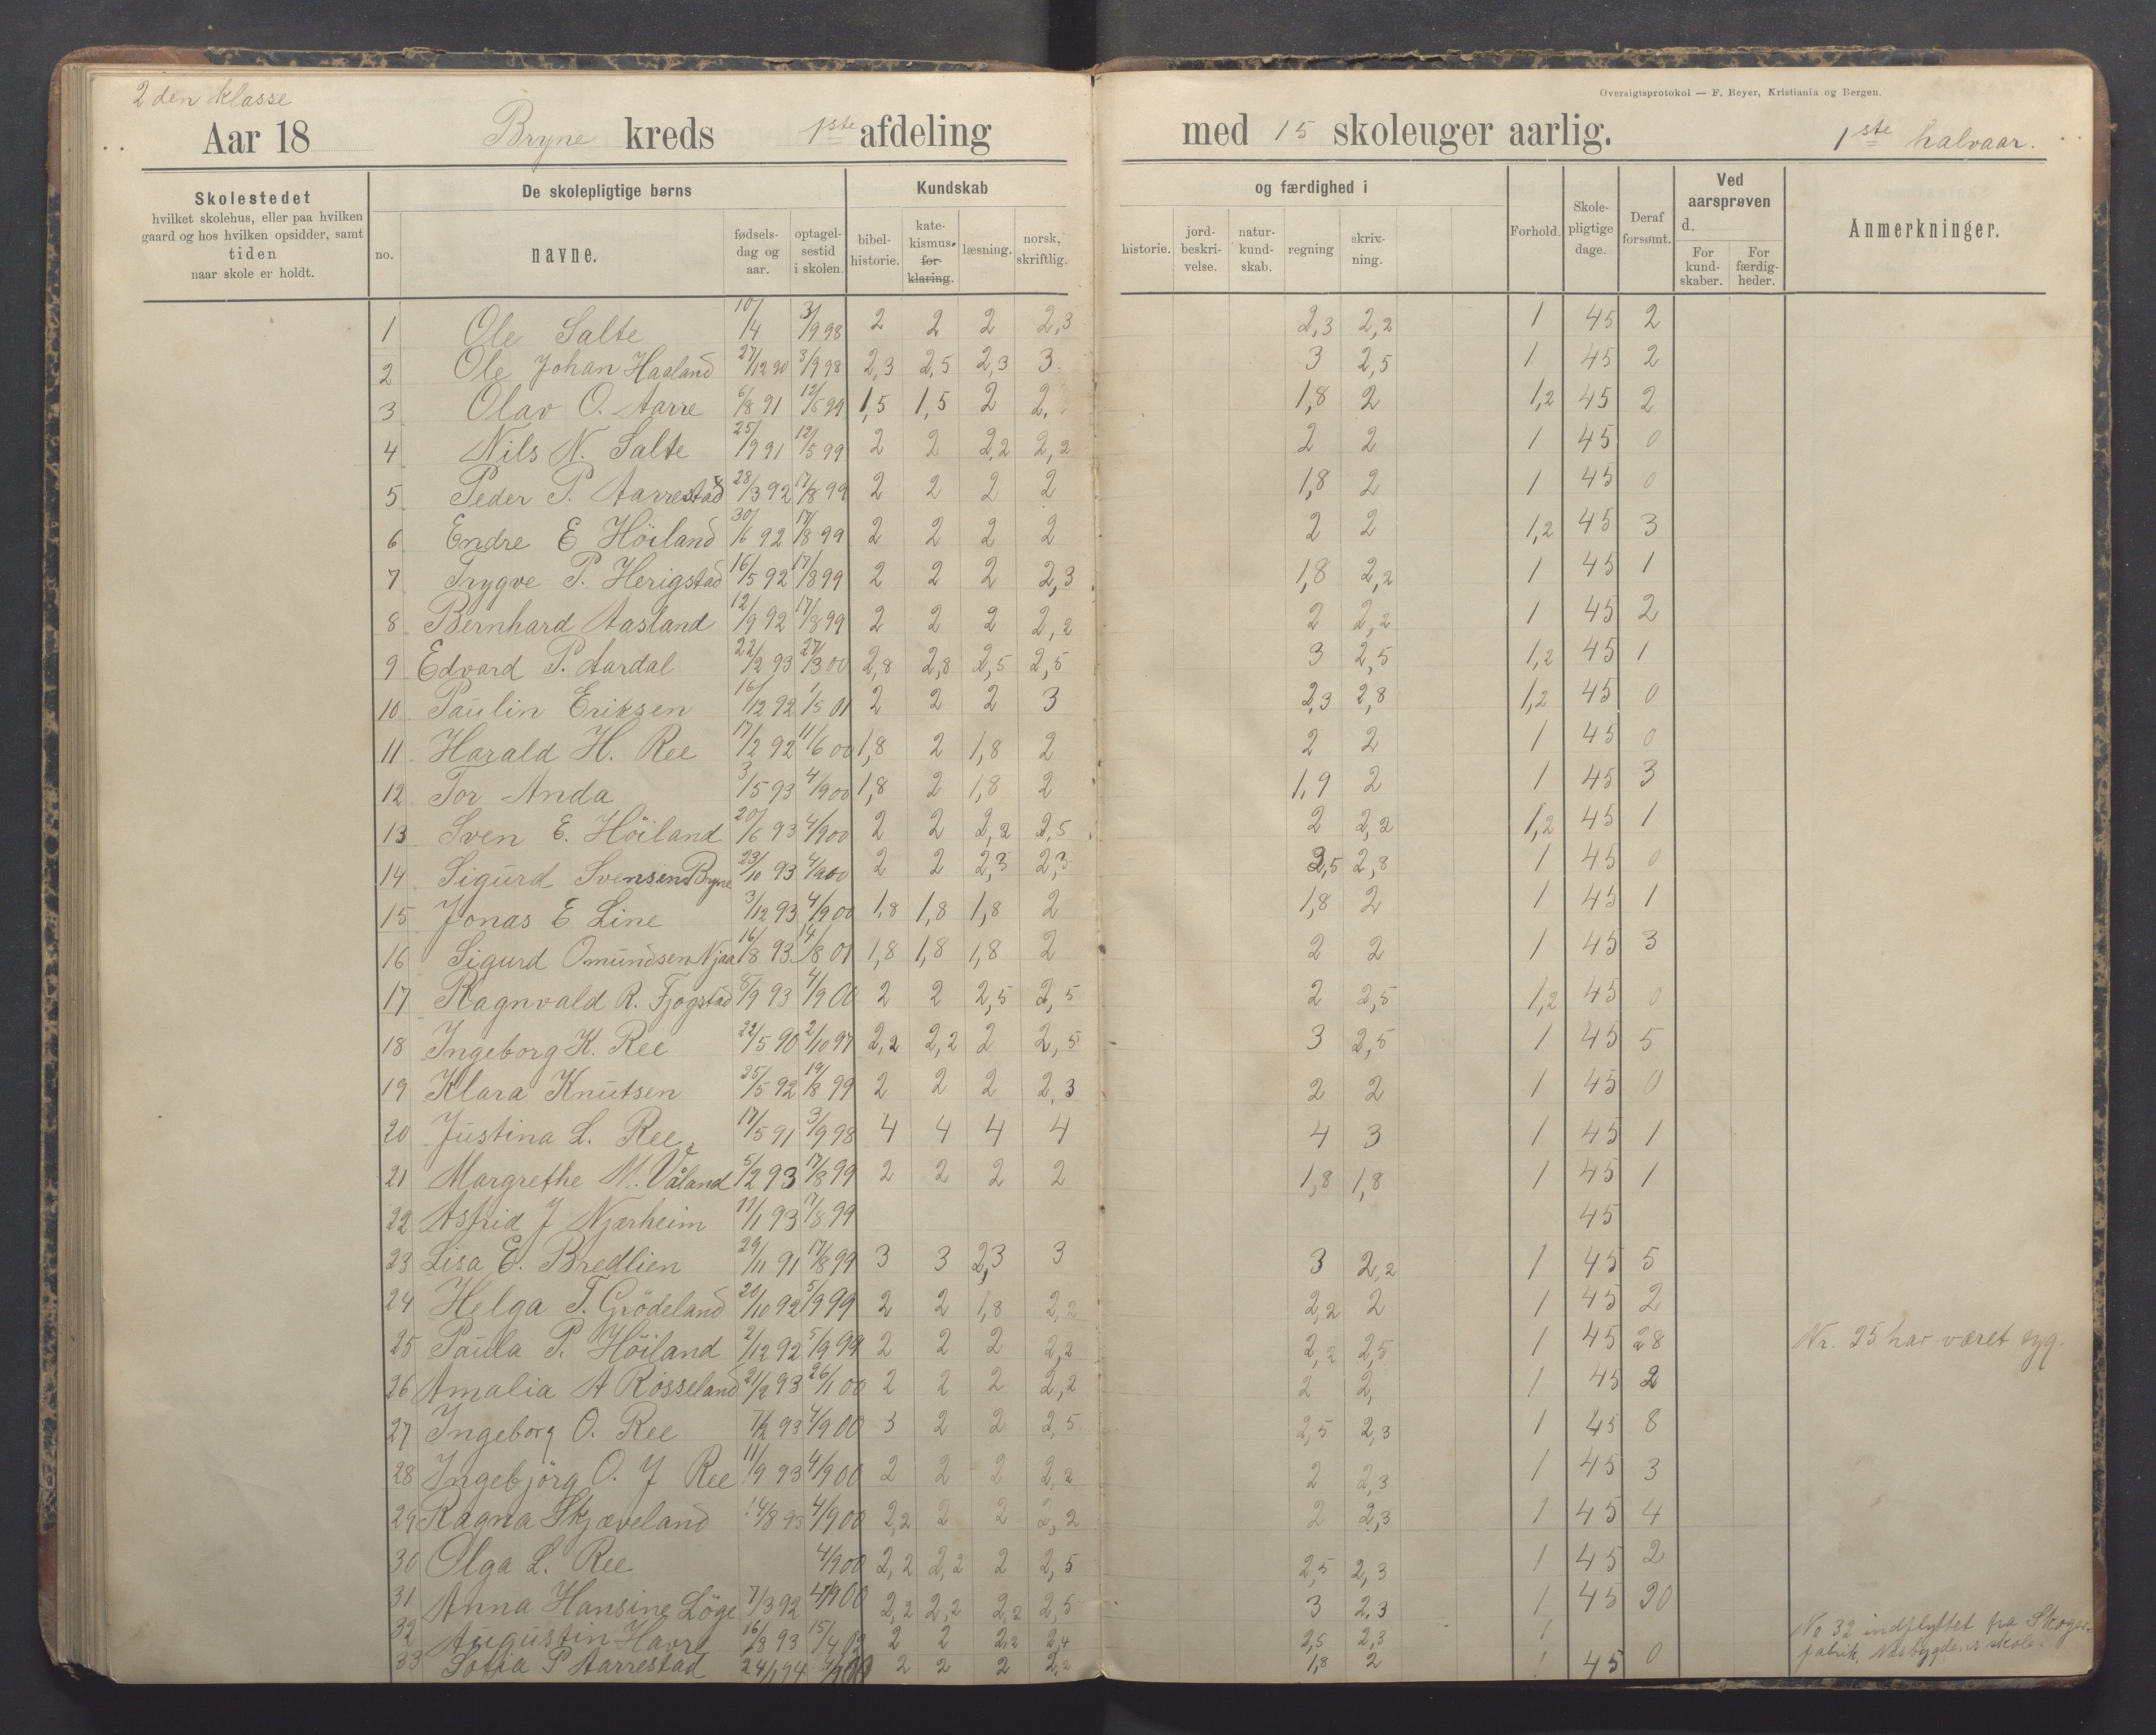 2 den klasse
Oversigtsprotokol — F. Beyer, Kristiania og Bergen.
Aar 18 Bryne kreds 1ste afdeling med 15 skoleuger aarlig. 1ste halvaar.
Skolestedet
hvilket skolehus, eller paa hvilken
gaard og hos hvilken opsidder, samt
tiden
naar skole er holdt.
De skolepligtige børns
no. navne. fødsels-dag og aar. optagel-sestid i skolen.
Kundskab og færdighed i
bibel-historie. kate-kismus. for-klaring. læsning. norsk, skriftlig. historie. jord-beskri-velse. natur-kund-skab. regning skriv-ning.
Forhold. Skole-pligtige dage. Deraf forsømt.
Ved aarsprøven d.
For kund-skaber. For færdig-heder.
Anmerkninger.
1 Ole Salte 10/4 3/9 98 2 2 2 2,3 2,3 2,2 1 45 2
2 Ole Johan Haaland 27/12 90 3/9 98 2,3 2,5 2,3 3 3 2,5 1 45 2
3 Olav O. Aarre 6/8 91 12/5 99 1,5 1,5 2 2, 1,8 2 1,2 45 2
4 Nils N. Salte 25/9 91 12/5 99 2 2 2,2 2,2 2 2 1 45 0
5 Peder P. Aarrestad 28/3 92 17/8 99 2 2 2 2 1,8 2 1 45 0
6 Endre E Höiland 30/6 92 17/8 99 2 2 2 2 2 2 1,2 45 3
7 Trygve P. Herigstad 16/5 92 17/8 99 2 2 2 2,3 1,8 2,2 1 45 1
8 Bernhard Aasland 12/9 92 17/8 99 2 2 2 2,2 2 2,2 1 45 2
9 Edvard P. Aardal 22/2 93 27/3 00 2,8 2,8 2,5 2,5 3 2,5 1,2 45 1
10 Paulin Eriksen 16/12 92 1/5 01 2 2 2 3 2,3 2,8 1,2 45 0
11 Harald H. Ree 17/2 92 11/6 00 1,8 2 1,8 2 2 2 1 45 0
12 Tor Anda 3/5 93 4/9 00 1,8 2 1,8 2 1,9 2 1 45 3
13 Sven E. Höiland 20/6 93 4/9 00 2 2 2,2 2,5 2 2,2 1,2 45 1
14 Sigurd Svensen Bryne 23/10 93 4/9 00 2 2 2,3 2,3 2,5 2,8 1 45 0
15 Jonas E Line 3/12 93 4/9 00 1,8 1,8 1,8 2 1,8 2 1 45 1
16 Sigurd Omundsen Njaa 16/8 93 14/8 01 1,8 1,8 1,8 2 2 2 1 45 3
17 Ragnvald R. Tjogstad 8/9 93 4/9 00 2 2 2,5 2,5 2 2,5 1,2 45 0
18 Ingeborg K. Ree 22/5 90 2/10 97 2,2 2,2 2 2,5 3 2,5 1 45 5
19 Klara Knutsen 25/5 92 19/8 99 2 2 2 2,3 2 2 1 45 0
20 Justina L. Ree 17/5 91 3/9 98 4 4 4 4 4 3 1 45 1
21 Margrethe M. Våland 5/2 93 17/8 99 2 2 2 2 1,8 1,8 1 45 1
22 Astrid J Njærheim 11/1 93 17/8 99 45
23 Lisa E. Bredlien 29/11 91 17/8 99 3 3 2,3 3 3 2,2 1 45 5
24 Helga T. Grödeland 20/10 92 5/9 99 2 2 1,8 2,2 2,2 2 1 45 2
25 Paula P. Höiland 2/12 92 5/9 99 2 2 2 2,2 2,2 2,5 1 45 28 Nr. 25 har været syg.
26 Amalia A Rosseland 21/2 93 26/1 00 2 2 2 2,2 2 2, 1 45 2
27 Ingeborg O. Ree 7/2 93 4/9 00 3 2 2 2,5 2,5 2,3 1 45 8
28 Ingebjörg O. J Ree 11/9 93 4/9 00 2 2 2 2,2 2 2,3 1 45 3
29 Ragna Skjæveland 14/8 93 4/9 00 2,2 2 2 2,2 2 2,3 1 45 4
30 Olga L. Ree 4/9 00 2,2 2,2 2 2,5 2,5 2,3 1 45 2
31 Anna Hansine Löge 7/3 92 4/9 00 2,2 2,2 2,2 2,5 3 2,3 1 45 20
32 Augustin Havre 16/8 93 15/4 02 2 2 2,2 2,4 2,5 2,3 1 Nr 32 indflyttet fra
fabrik, Næsbygdens skole.
33 Sofia P Aarrestad 24/1 94 4/9 00 2 2 2 2,2 1,8 2 1 45 0